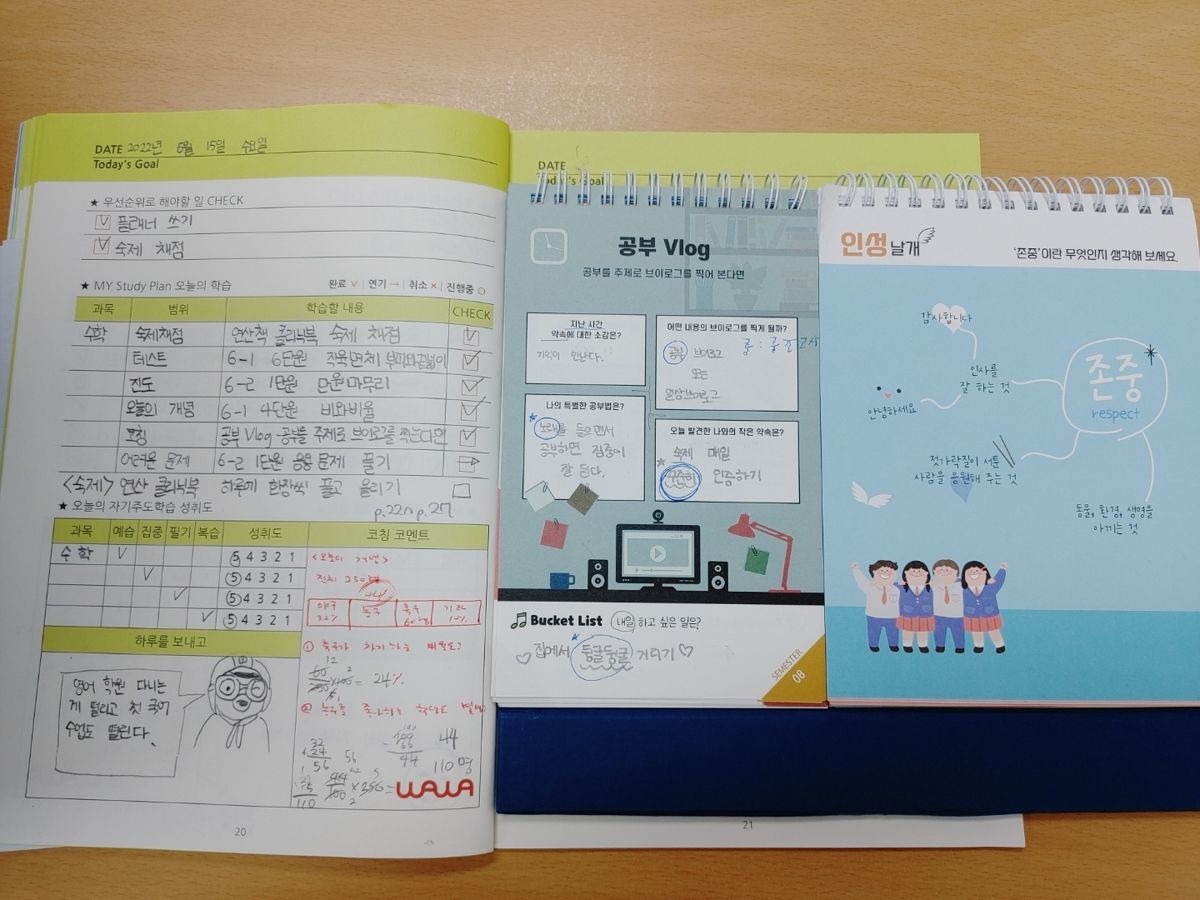 DATE 2022년 6월 15일 수요일
Today's Goal
★ 우선순위로 해야할 일 CHECK
플래너 쓰기
숙제 채점
★ MY Study Plan 오늘의 학습 완료 ∨ 연기 → 취소 × 진행중 ○
과목 범위 학습할 내용 CHECK
수학 숙제채점 연산책 클리닉북 숙제 채점
테스트 6-1 6단원 직육면체 부피와 겉넓이
진도 6-2 1단원 단원마무리
오늘의 개념 6-1 4단원 비와비율
코칭 공부 Vlog-공부를 주제로 브이로그를 찍는다면
어려운 문제 6-2 1단원 응용 문제 풀기
<숙제> 연산 클리닉북 하루에 한장씩 풀고 올리기
p.22~p.27
★ 오늘의 자기주도학습 성취도
과목 예습 집중 필기 복습 성취도 코칭 코멘트
수학 ∨ 5 4 3 2 1
∨ 5 4 3 2 1
∨ 5 4 3 2 1
∨ 5 4 3 2 1
하루를 보내고
영어 학원 다니는
게 떨리고 첫 국어
수업도 떨린다.
<오늘의 개념>
전체 250명
44
야구 농구 축구 기타
60명
= 24%
32
24
56
56
44
44
110명
110
WAWA
20
DATE
Today's Goal
공부 Vlog
공부를 주제로 브이로그를 찍어 본다면
지난 시간
약속에 대한 소감은?
기억이 안난다.
어떤 내용의 브이로그를 찍게 될까?
공부 브이로그
또는
일상브이로그
나의 특별한 공부법은?
노래를 들으면서
공부하면 집중이
잘 된다.
오늘 발견한 나와의 작은 약속은?
숙제 매일
꾸준히 인증하기
Bucket List 내일 하고 싶은 일은?
집에서 둥글둥글 거리기
SEMESTER
08
21
인성날개
'존중'이란 무엇인지 생각해 보세요.
감사합니다
인사를
잘 하는 것
안녕하세요
존중
respect
젓가락질이 서툰
사람을 응원해 주는 것
동물, 환경, 생명을
아끼는 것